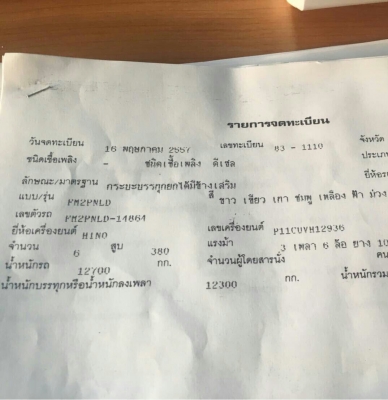 รายการจดทะเบียน
วันจดทะเบียน 16 พฤษภาคม 2557 เลขทะเบียน 83 - 1110 จังหวัด
ชนิดเชื้อเพลิง - ชนิดเชื้อเพลิง ดีเซล ประเภท
ลักษณะ/มาตรฐาน กระบะบรรทุกยกได้มีข้างเสริม
แบบ/รุ่น FM2PNLD สี ขาว เขียว เทา ชมพู เหลือง ฟ้า ม่วง
เลขตัวรถ FM2PNLD-14864 เลขเครื่องยนต์ P11CUVH12936
ยี่ห้อเครื่องยนต์ HINO 3 เพลา 6 ล้อ ยาง 10
จำนวน 6 สูบ 380 แรงม้า
น้ำหนักรถ 12700 กก. จำนวนผู้โดยสารนั่ง คน
น้ำหนักบรรทุกหรือน้ำหนักลงเพลา 12300 กก. น้ำหนักรวม